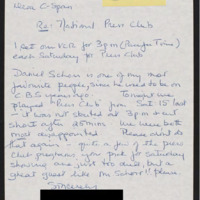 Dear C-Span
Re: National Press Club
I set our VCR for 3pm (Pacific Time)
each Saturday for Press Club
Daniel Schorr is one of my most
favorite people, since he used to be on
C.B.S. Tonight we
played "Press Club" from Sat 15th last
- it was not started at 3pm & cut
short after 45mins We were both
most disappointed. Please don't do
that again - quite a few of the Press
Club programs you for Saturday
showing are just too dull, but a
great guest like Mr Schorr!! please.
Sincerely